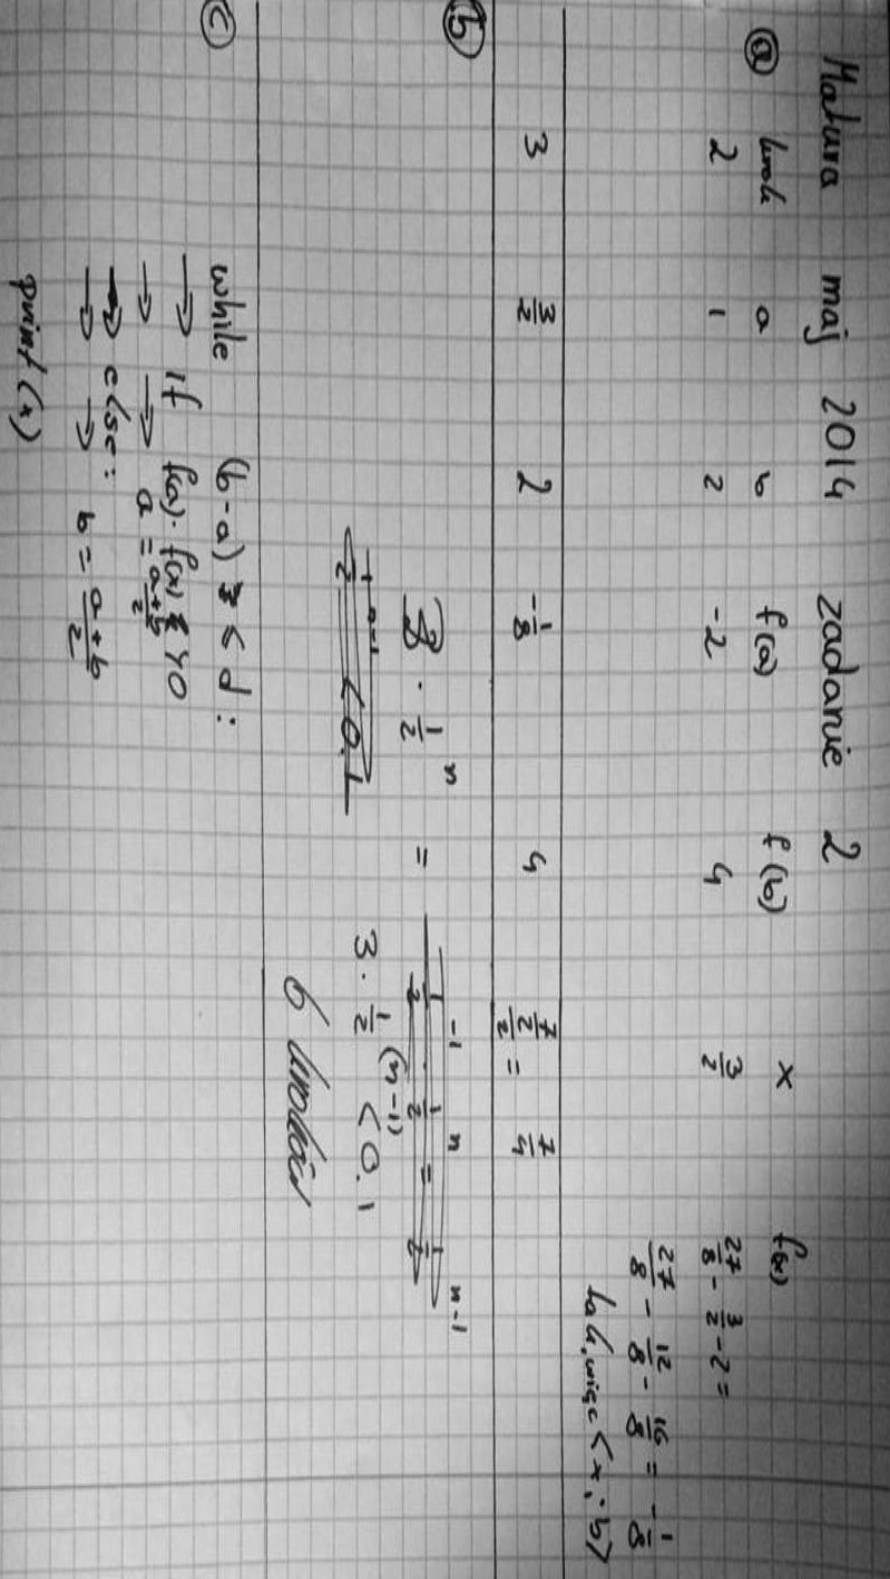 Matura maj 2014 zadanie 2
a krok a b f(a) f(b) x f(x)
2 1 2 -2 4 3/2 27/8 - 3/2 - 2 =
27/8 - 12/8 - 16/8 = - 1/8
tak, więc <x; b>
3 3/2 2 -1/8 4 7/2/2 = 7/4
b
3 · 1/2^n = 1/2^-1 · 1/2^n = 1/2^n-1
1/2^n-1 < 0.1 3 · 1/2^(n-1) < 0.1
6 kroków
c while (b-a) ≤ d :
→ if f(a) · f(x) >0
→ → a = a+b/2
→ else :
→ → b = a+b/2
print (x)